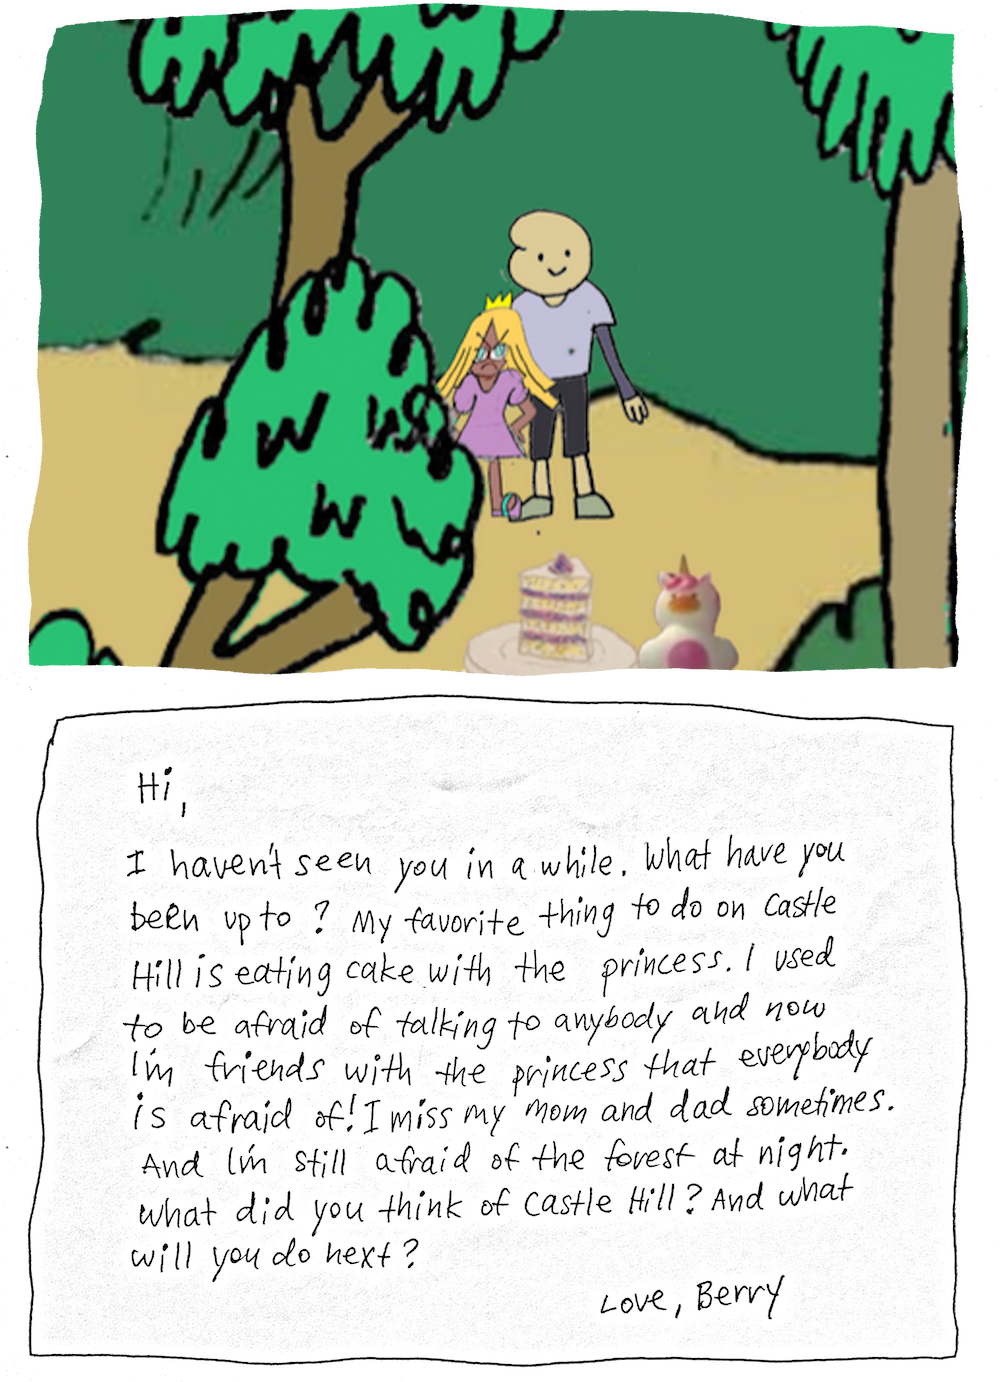 Hi,
I haven't seen you in a while. What have you
been up to? My favorite thing to do on Castle
Hill is eating cake with the princess. I used
to be afraid of talking to anybody and now
I'm friends with the princess that everybody
is afraid of! I miss my mom and dad sometimes.
And I'm still afraid of the forest at night.
What did you think of Castle Hill? And what
will you do next?
Love, Berry